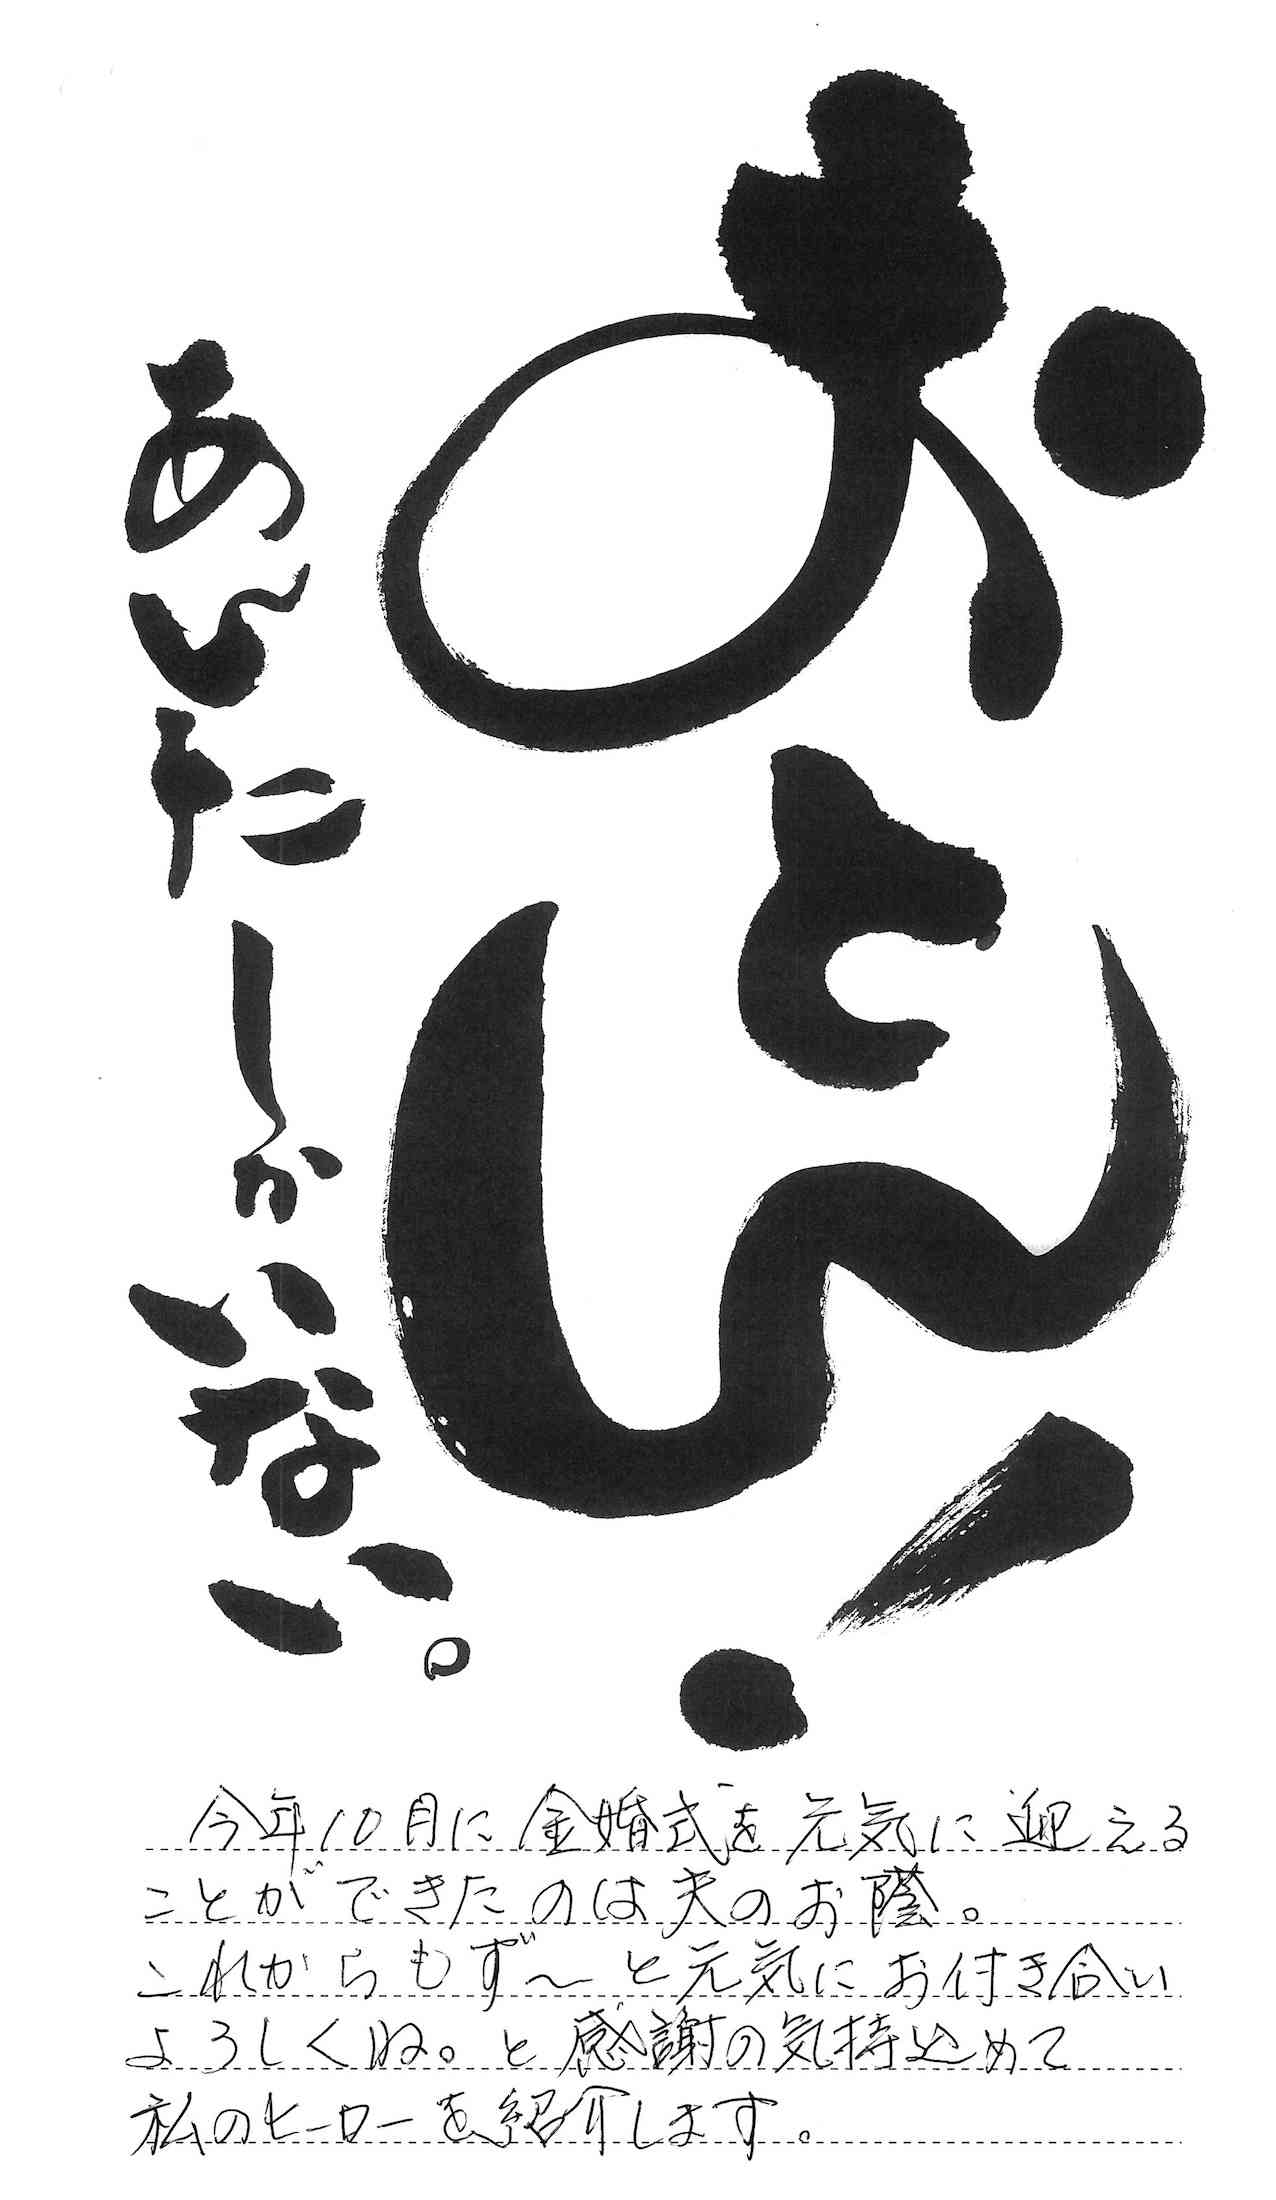 おとん!
あんたしかいない。
今年10月に金婚式を元気に迎える
ことができたのは夫のお陰。
これからもず〜と元気にお付き合い
よろしくね。と感謝の気持込めて
私のヒーローを紹介します。